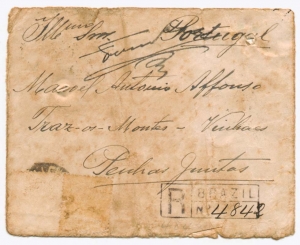 Illmo Snr
Portugal
Manoel Antonio Affonso
Traz-os-Montes - Vinhaes
Penhas Juntas
R BRAZIL
Nº 4842